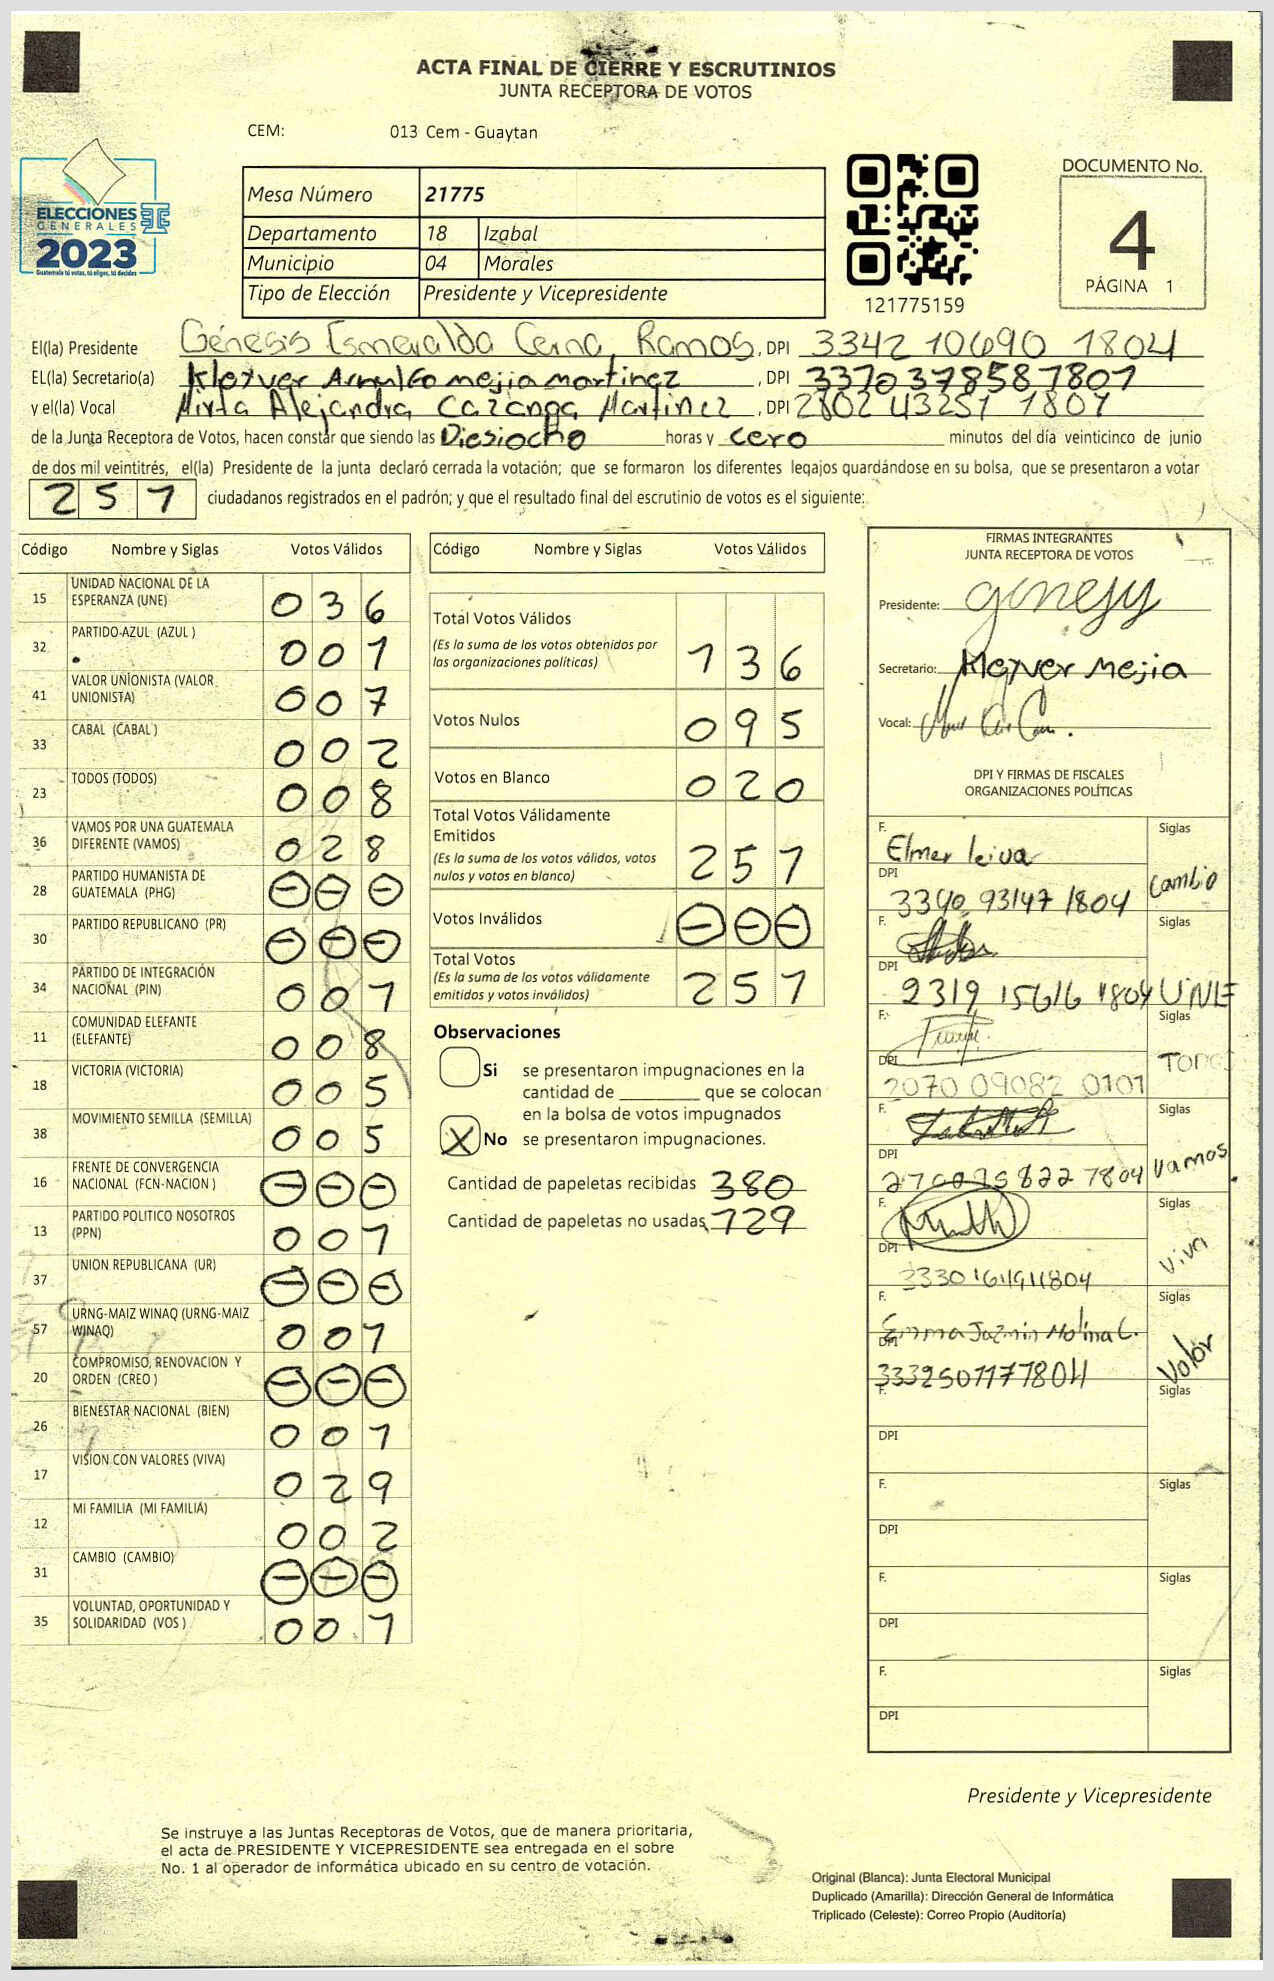 ACTA FINAL DE CIERRE Y ESCRUTINIOS
JUNTA RECEPTORA DE VOTOS
CEM: 013 Cem - Guaytan
ELECCIONES
GENERALES
2023
Guatemala tú votas, tú eliges, tú decides
Mesa Número 21775
Departamento 18 Izabal
Municipio 04 Morales
Tipo de Elección Presidente y Vicepresidente
121775159
DOCUMENTO No.
4
PÁGINA 1
El(la) Presidente Génesis Esmeralda Cerna Ramos, DPI 3342 10690 1804
EL(la) Secretario(a) Kleyver Arnulfo mejia martinez, DPI 3370378581801
y el(la) Vocal Mirta Alejandra Cazanga Martinez, DPI 2802 43251 1804
de la Junta Receptora de Votos, hacen constar que siendo las Diesiocho horas y cero minutos del día veinticinco de junio
de dos mil veintitrés, el(la) Presidente de la junta declaró cerrada la votación; que se formaron los diferentes legajos quardándose en su bolsa, que se presentaron a votar
251 ciudadanos registrados en el padrón; y que el resultado final del escrutinio de votos es el siguiente:
Código Nombre y Siglas Votos Válidos
15 UNIDAD NACIONAL DE LA
ESPERANZA (UNE) 036
32 PARTIDO AZUL (AZUL ) 001
41 VALOR UNIONISTA (VALOR
UNIONISTA) 007
33 CABAL (CABAL ) 002
23 TODOS (TODOS) 008
36 VAMOS POR UNA GUATEMALA
DIFERENTE (VAMOS) 028
28 PARTIDO HUMANISTA DE
GUATEMALA (PHG) ⊖⊖⊖
30 PARTIDO REPUBLICANO (PR) ⊖⊖⊖
34 PARTIDO DE INTEGRACIÓN
NACIONAL (PIN) 001
11 COMUNIDAD ELEFANTE
(ELEFANTE) 008
18 VICTORIA (VICTORIA) 005
38 MOVIMIENTO SEMILLA (SEMILLA) 005
16 FRENTE DE CONVERGENCIA
NACIONAL (FCN-NACION ) ⊖⊖⊖
13 PARTIDO POLITICO NOSOTROS
(PPN) 001
37 UNION REPUBLICANA (UR) ⊖⊖⊖
57 URNG-MAIZ WINAQ (URNG-MAIZ
WINAQ) 001
20 COMPROMISO, RENOVACION Y
ORDEN (CREO ) ⊖⊖⊖
26 BIENESTAR NACIONAL (BIEN) 001
17 VISION CON VALORES (VIVA) 029
12 MI FAMILIA (MI FAMILIA) 002
31 CAMBIO (CAMBIO) ⊖⊖⊖
35 VOLUNTAD, OPORTUNIDAD Y
SOLIDARIDAD (VOS ) 001
Código Nombre y Siglas Votos Válidos
Total Votos Válidos
(Es la suma de los votos obtenidos por
las organizaciones políticas) 136
Votos Nulos 095
Votos en Blanco 020
Total Votos Válidamente
Emitidos
(Es la suma de los votos válidos, votos
nulos y votos en blanco) 251
Votos Inválidos ⊖⊖⊖
Total Votos
(Es la suma de los votos válidamente
emitidos y votos inválidos) 251
Observaciones
Si se presentaron impugnaciones en la
cantidad de ________ que se colocan
en la bolsa de votos impugnados
X No se presentaron impugnaciones.
Cantidad de papeletas recibidas 380
Cantidad de papeletas no usadas 129
FIRMAS INTEGRANTES
JUNTA RECEPTORA DE VOTOS
Presidente:
Secretario: Kleyver mejia
Vocal:
DPI Y FIRMAS DE FISCALES
ORGANIZACIONES POLÍTICAS
F. Elmer leiva Siglas
DPI 3340 93147 1804 cambio
F. Siglas
DPI 2319 15616 1804 UNE
F. Siglas
DPI 2070 09082 0101 TODOS
F. Siglas
DPI vamos
F. Siglas
DPI viva
F. Emma Jazmin Molina C. Siglas
DPI 3332501171804 valor
F. Siglas
DPI
F. Siglas
DPI
F. Siglas
DPI
F. Siglas
DPI
Presidente y Vicepresidente
Se instruye a las Juntas Receptoras de Votos, que de manera prioritaria,
el acta de PRESIDENTE Y VICEPRESIDENTE sea entregada en el sobre
No. 1 al operador de informática ubicado en su centro de votación.
Original (Blanca): Junta Electoral Municipal
Duplicado (Amarilla): Dirección General de Informática
Triplicado (Celeste): Correo Propio (Auditoría)